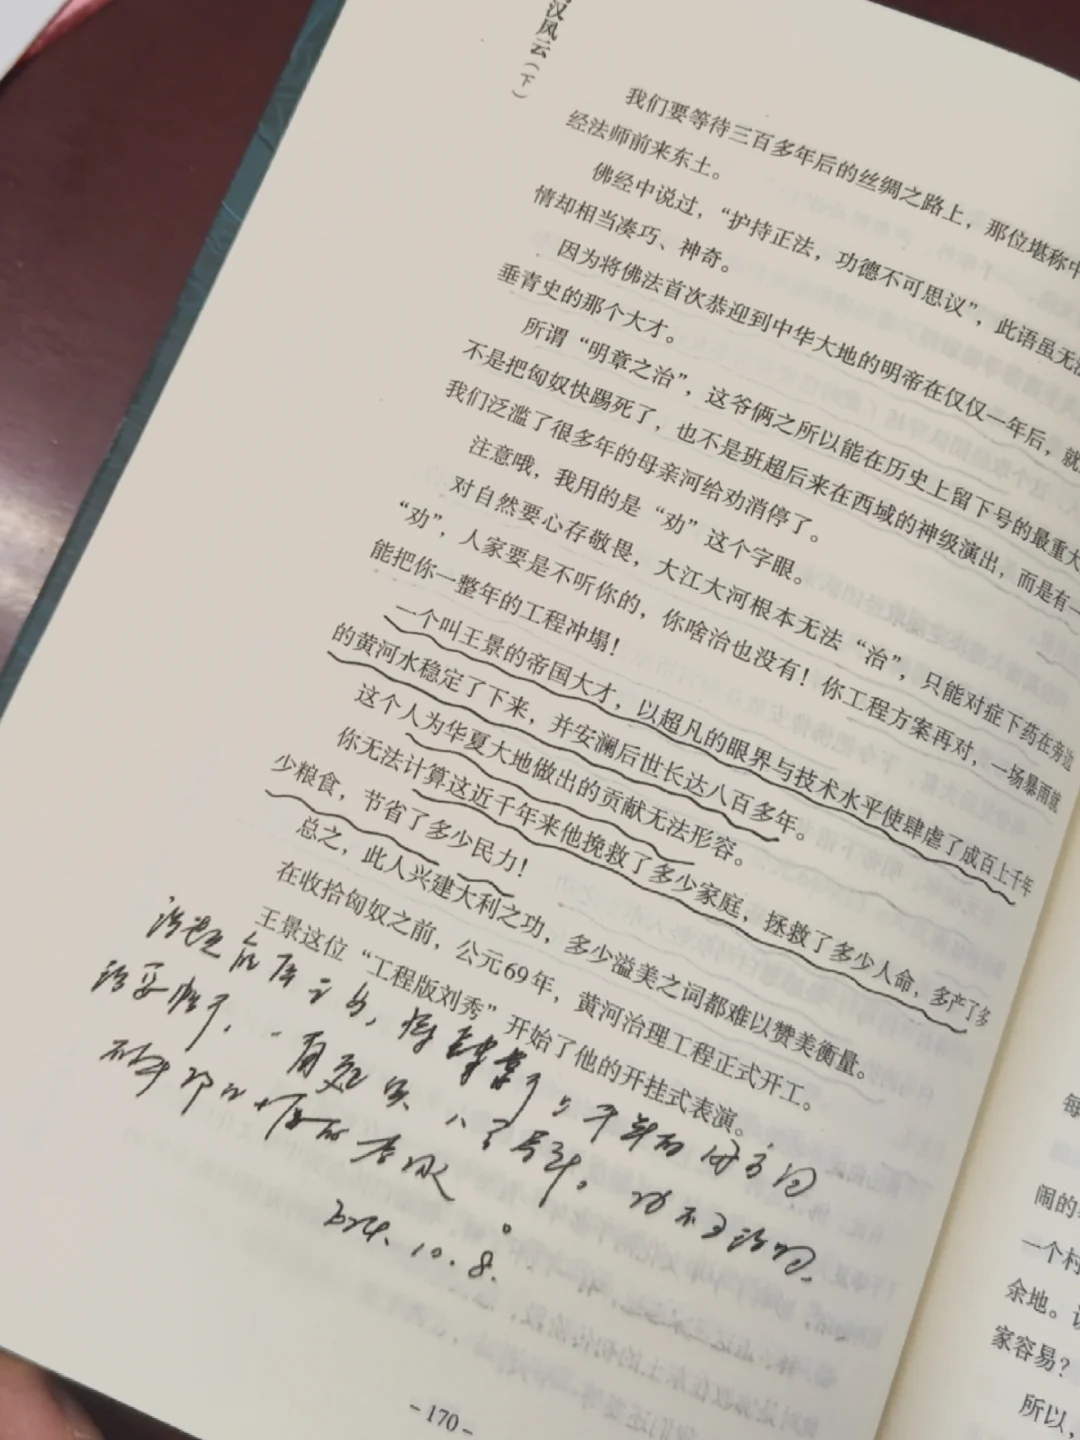 汉风云（下）
我们要等待三百多年后的丝绸之路上，那位堪称中
经法师前来东土。
佛经中说过，“护持正法，功德不可思议”，此语虽无法
情却相当凑巧、神奇。
因为将佛法首次恭迎到中华大地的明帝在仅仅一年后，就
垂青史的那个大才。
所谓“明章之治”，这爷俩之所以能在历史上留下号的最重大
不是把匈奴快踢死了，也不是班超后来在西域的神级演出，而是有一
我们泛滥了很多年的母亲河给劝消停了。
注意哦，我用的是“劝”这个字眼。
对自然要心存敬畏，大江大河根本无法“治”，只能对症下药在旁边
“劝”，人家要是不听你的，你啥治也没有！你工程方案再对，一场暴雨就
能把你一整年的工程冲塌！
一个叫王景的帝国大才，以超凡的眼界与技术水平使肆虐了成百上千年
的黄河水稳定了下来，并安澜后世长达八百多年。
这个人为华夏大地做出的贡献无法形容。
你无法计算这近千年来他挽救了多少家庭，拯救了多少人命，多产了多
少粮食，节省了多少民力！
总之，此人兴建大利之功，多少溢美之词都难以赞美衡量。
在收拾匈奴之前，公元69年，黄河治理工程正式开工。
王景这位“工程版刘秀”开始了他的开挂式表演。
10.8.
-170-
每
闹的
一个村
余地。
家容易？
所以，